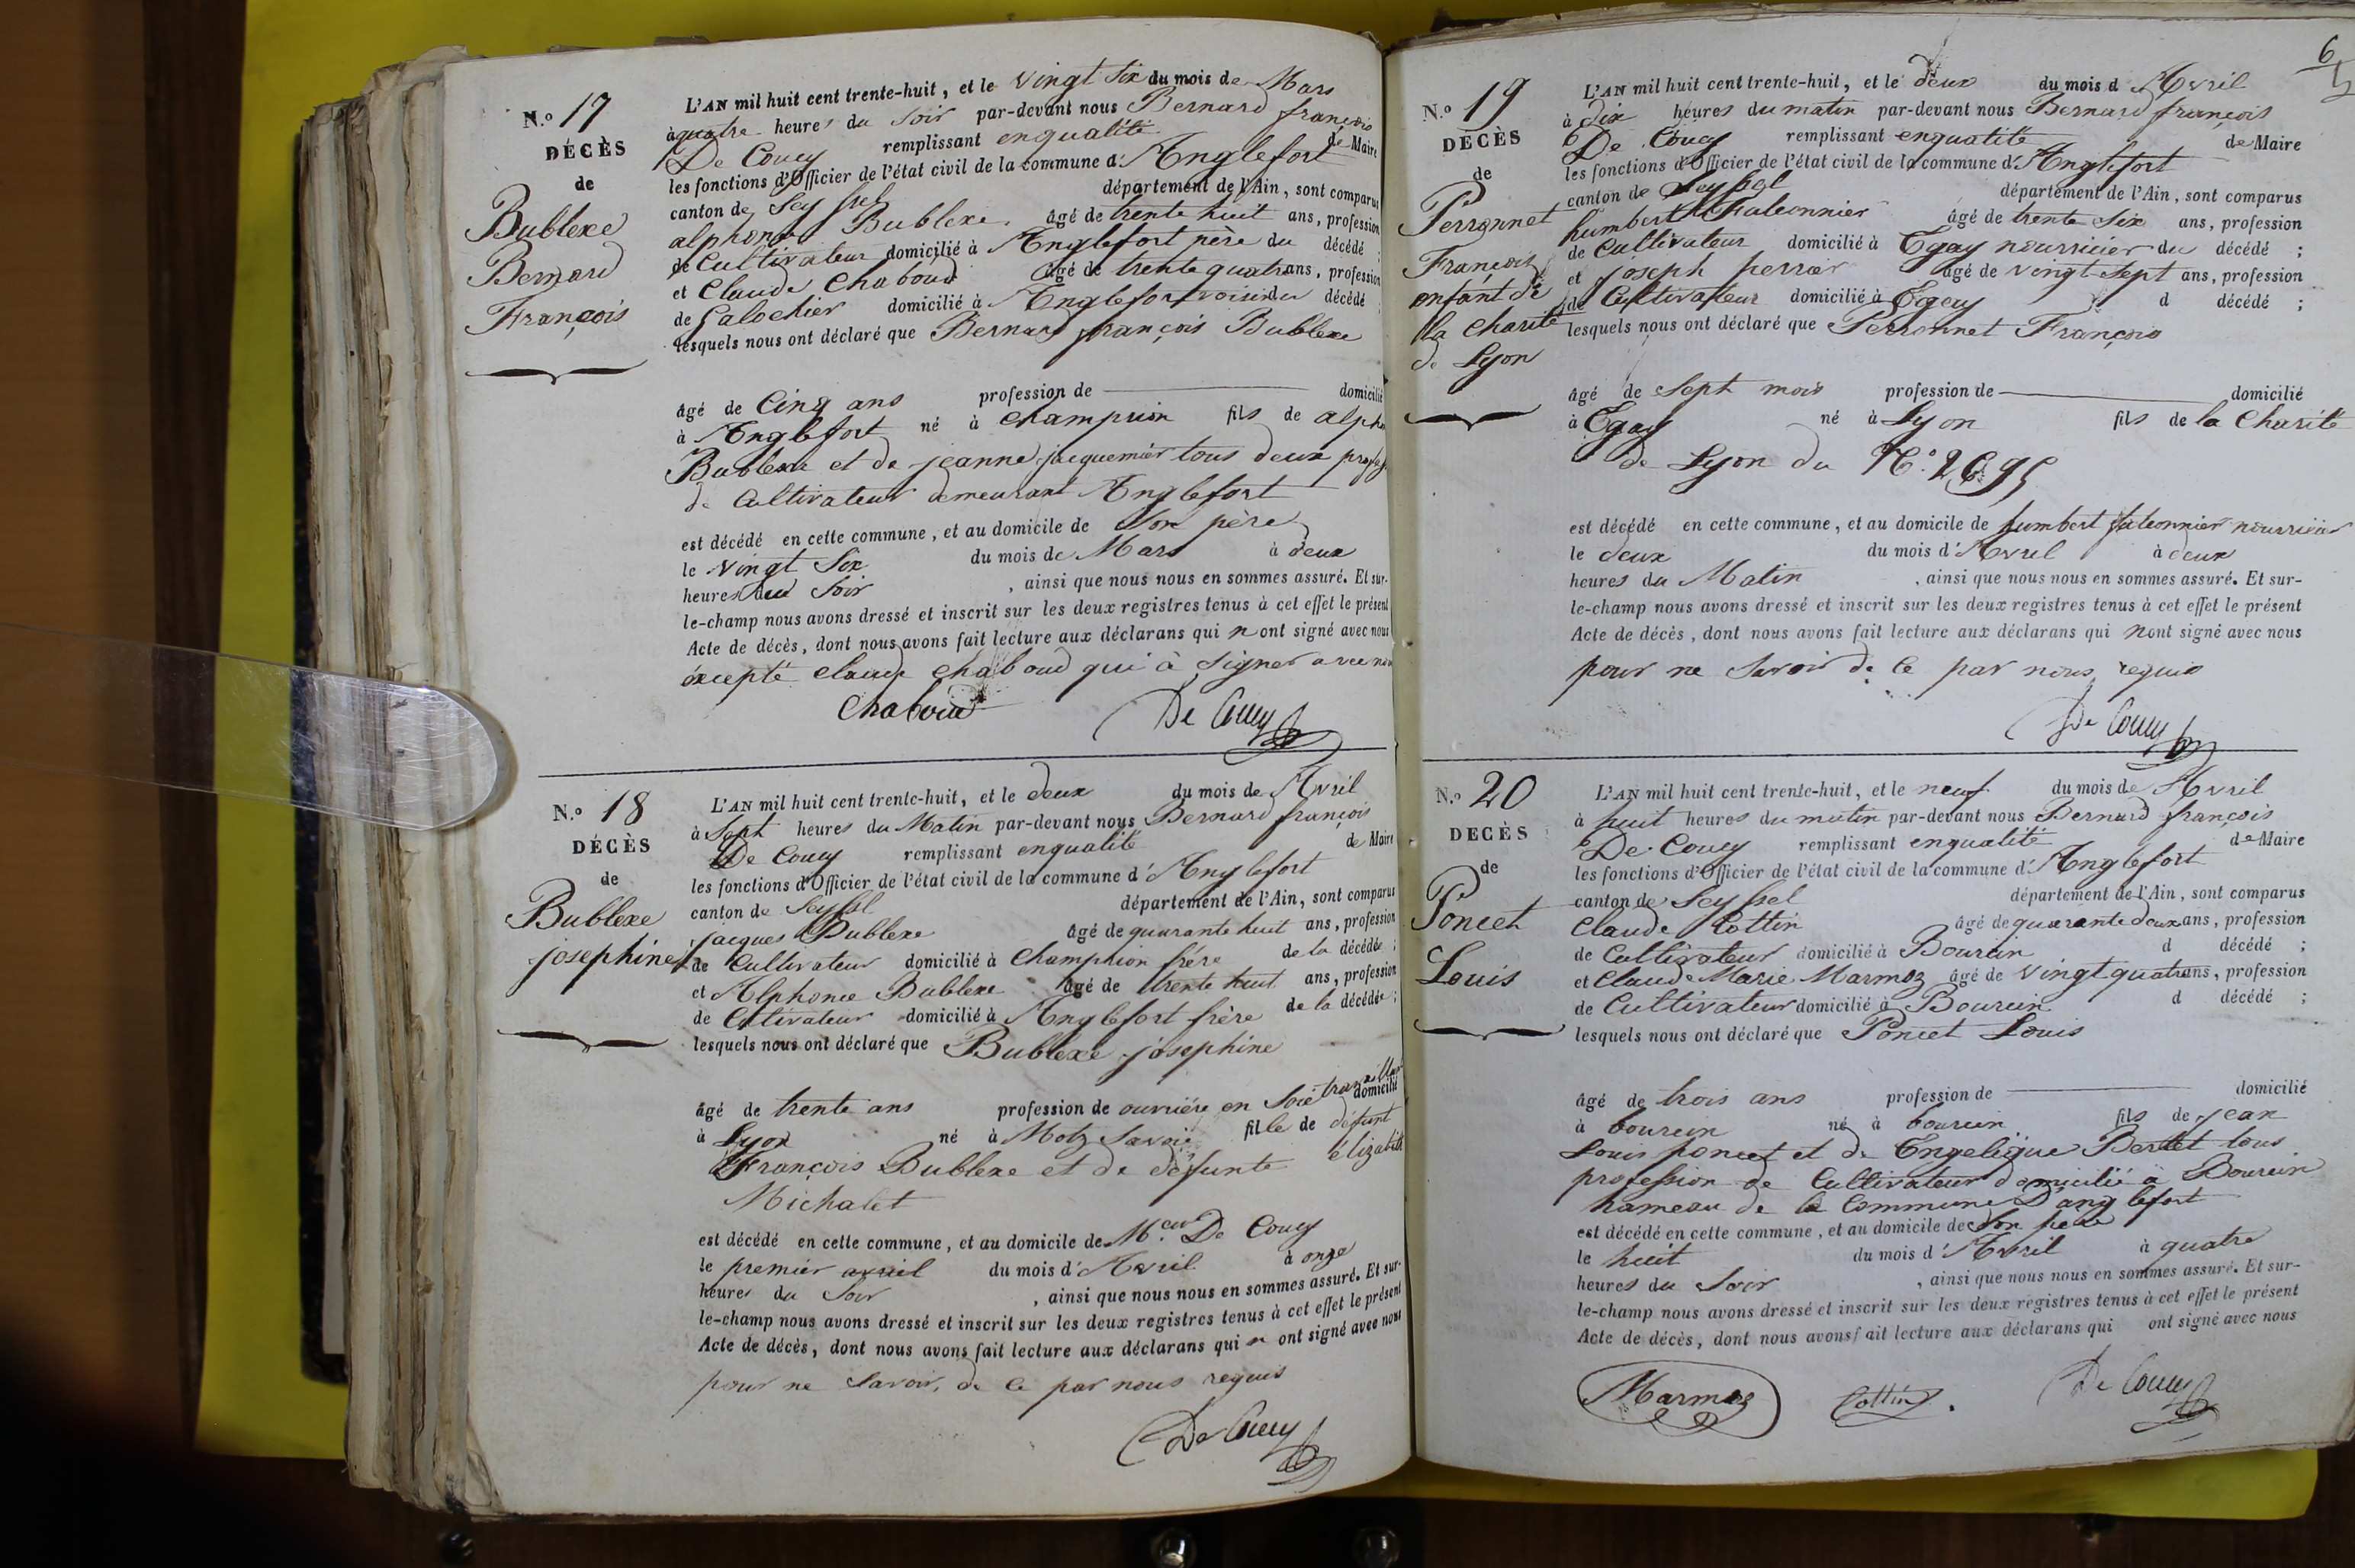 N.o 17
DÉCÈS
de
Bublexe
Bernard
François
L'AN mil huit cent trente-huit, et le vingt Six du mois de Mars
à quatre heures du Soir par-devant nous Bernard françois
De Coucy remplissant enqualité de Maire
les fonctions d'Officier de l'état civil de la commune d'Anglefort
canton de Seyssel département de l'Ain, sont comparus
alphonce Bublexe âgé de trente huit ans, profession
de Cultivateur domicilié à Anglefort père du décédé ;
et Claude Chaboud âgé de trente quatre ans, profession
de Galochier domicilié à Anglefort voisin du décédé ;
lesquels nous ont déclaré que Bernard françois Bublexe
âgé de Cinq ans profession de domicilié
à Anglefort né à Champrion fils de alpho
Bublexe et de jeanne jacquemier tous deux
de Cultivateur demeurant Anglefort
est décédé en cette commune, et au domicile de Son père
le vingt Six du mois de Mars à deux
heures du Soir , ainsi que nous nous en sommes assuré. Et sur-
le-champ nous avons dressé et inscrit sur les deux registres tenus à cet effet le présent
Acte de décès, dont nous avons fait lecture aux déclarans qui n ont signé avec nous
éxcepté claude chaboud qui à Signer avec nous
Chaboud De Coucy
N.o 18
DÉCÈS
de
Bublexe
josephine
L'AN mil huit cent trente-huit, et le deux du mois de Avril
à Sept heures du Matin par-devant nous Bernard françois
De Coucy remplissant enqualité de Maire
les fonctions d'Officier de l'état civil de la commune d'Anglefort
canton de Seyssel département de l'Ain, sont comparus
jacques Bublexe âgé de quarante huit ans, profession
de Cultivateur domicilié à Champrion frère de la décédée ;
et Alphonce Bublexe âgé de trente huit ans, profession
de Cltivateur domicilié à Anglefort frère de la décédée ;
lesquels nous ont déclaré que Bublexe josephine
âgé de trente ans profession de ouvriére en Soie domicilié
à Lyon né à Motz Savoie fille de défunt
François Bublexe et de défunte élizabeth
Michalet
est décédé en cette commune, et au domicile de De Coucy
le premier avril du mois d'Avril à onze
heures du Soir , ainsi que nous nous en sommes assuré. Et sur-
le-champ nous avons dressé et inscrit sur les deux registres tenus à cet effet le présent
Acte de décès, dont nous avons fait lecture aux déclarans qui n ont signé avec nous
pour ne Savoir, de Ce par nous requis
De Coucy
N.o 19
DÉCÈS
de
Perronnet
François
enfant de
la Charité
de Lyon
L'AN mil huit cent trente-huit, et le deux du mois d Avril
à dix heures du matin par-devant nous Bernard françois
De Coucy remplissant enqualité de Maire
les fonctions d'Officier de l'état civil de la commune d'Anglefort
canton de Seyssel département de l'Ain, sont comparus
humbert falconnier âgé de trente Six ans, profession
de Cultivateur domicilié à Egay nourricier du décédé ;
et joseph perrier âgé de vingt Sept ans, profession
de Cultivateur domicilié à Egay d décédé ;
lesquels nous ont déclaré que Perronnet François
âgé de Sept mois profession de domicilié
à Egay né à Lyon fils de la Charité
de Lyon du N.o 2695
est décédé en cette commune, et au domicile de humbert falconnier nourricier
le deux du mois d'Avril à deux
heures du Matin , ainsi que nous nous en sommes assuré. Et sur-
le-champ nous avons dressé et inscrit sur les deux registres tenus à cet effet le présent
Acte de décès, dont nous avons fait lecture aux déclarans qui nont signé avec nous
pour ne Savoir de Ce par nous requis
De Coucy
N.o 20
DECÈS
de
Poncet
Louis
L'AN mil huit cent trente-huit, et le neuf du mois de Avril
à huit heures du matin par-devant nous Bernard françois
De Coucy remplissant enqualité de Maire
les fonctions d'Officier de l'état civil de la commune d'Anglefort
canton de Seyssel département de l'Ain, sont comparus
Claude Cottin âgé de quarante deux ans, profession
de Cultivateur domicilié à Bourcin d décédé ;
et Claude Marie Marmoz âgé de vingt quatre ans, profession
de Cultivateur domicilié à Bourcin d décédé ;
lesquels nous ont déclaré que Poncet Louis
âgé de trois ans profession de domicilié
à bourcin né à bourcin fils de jean
Louis poncet et de Engelique Bertet tous
profession de Cultivateur domicilié à Bourcin
hameau de la Commune D'anglefort
est décédé en cette commune, et au domicile de Son père
le huit du mois d'Avril à quatre
heures du Soir , ainsi que nous nous en sommes assuré. Et sur-
le-champ nous avons dressé et inscrit sur les deux registres tenus à cet effet le présent
Acte de décès, dont nous avons fait lecture aux déclarans qui ont signé avec nous
Marmoz Cottin De Coucy